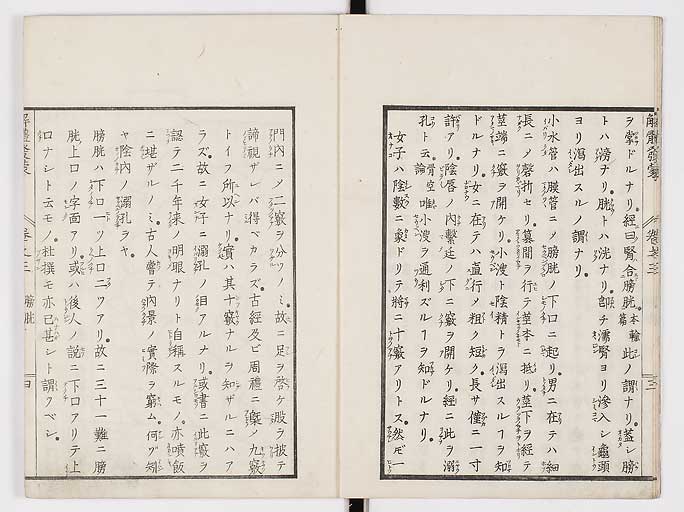 解體發蒙
卷之三
三
ヲ掌ドルナリ經曰腎合膀胱本輸篇此ノ謂ナリ蓋シ膀
トハ滂ナリ胱トハ洸ナリ卽チ濡腎ヨリ滲入シ龜頭
ヨリ瀉出スルノ謂ナリ
小水管ハ膜管ニノ膀胱ノ下口ニ起リ男ニ在テハ細
長ニノ磬折セリ纂間ニ行テ莖本ニ抵リ莖下ヲ經テ
莖端ニ竅ヲ開ケリ小溲ト陰精トヲ瀉出スルヿヲ知
ドルナリ女ニ在テハ直行ノ粗ク短ク長サ僅ニ一寸
許アリ陰唇ノ內繫廷ノ下ニ竅ヲ開ケリ經ニ此ヲ溺
孔ト云骨空論唯小溲ヲ通利ズルヿヲ知ドルナリ
女子ハ陰數ニ象ドリテ將ニ十竅アリトス然𪜈一
門內ニノ二竅ヲ分ツノミ故ニ足ヲ啓ケ股ヲ披テ
諦視ザレバ得ベカラズ古經及ビ周禮ニ槩ノ九竅
トイフ所以ナリ實ハ其十竅ナルヲ知ザルニハア
ラズ故ニ女子ニ溺孔ノ目アルナリ或書ニ此竅ヲ
認テ二千年來ノ明眼ナリト自稱スルモノ亦噴飯
ニ堪ザルノミ古人嘗テ內景ノ實際ヲ窮ム何ゾ知
ヤ陰內ノ溺孔ヲヤ
膀胱ハ下口一ツ上口二ツアリ故ニ三十一難ニ膀
胱上口ノ字面アリ或ハ後人ノ說ニ下口アリテ上
口ナシト云モノ杜撰モ亦已甚シト謂フベシ
解體發蒙
卷之三
膀胱
四